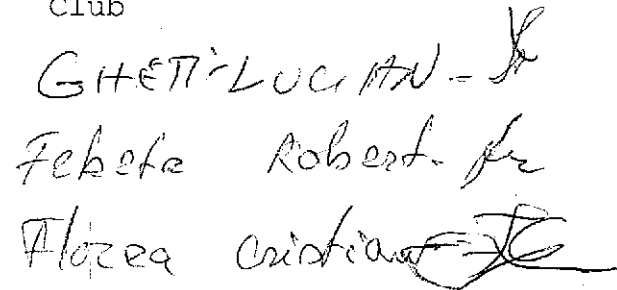 club
GHETI-LUCIAN -
Fekete Robert -
Florea Cristian